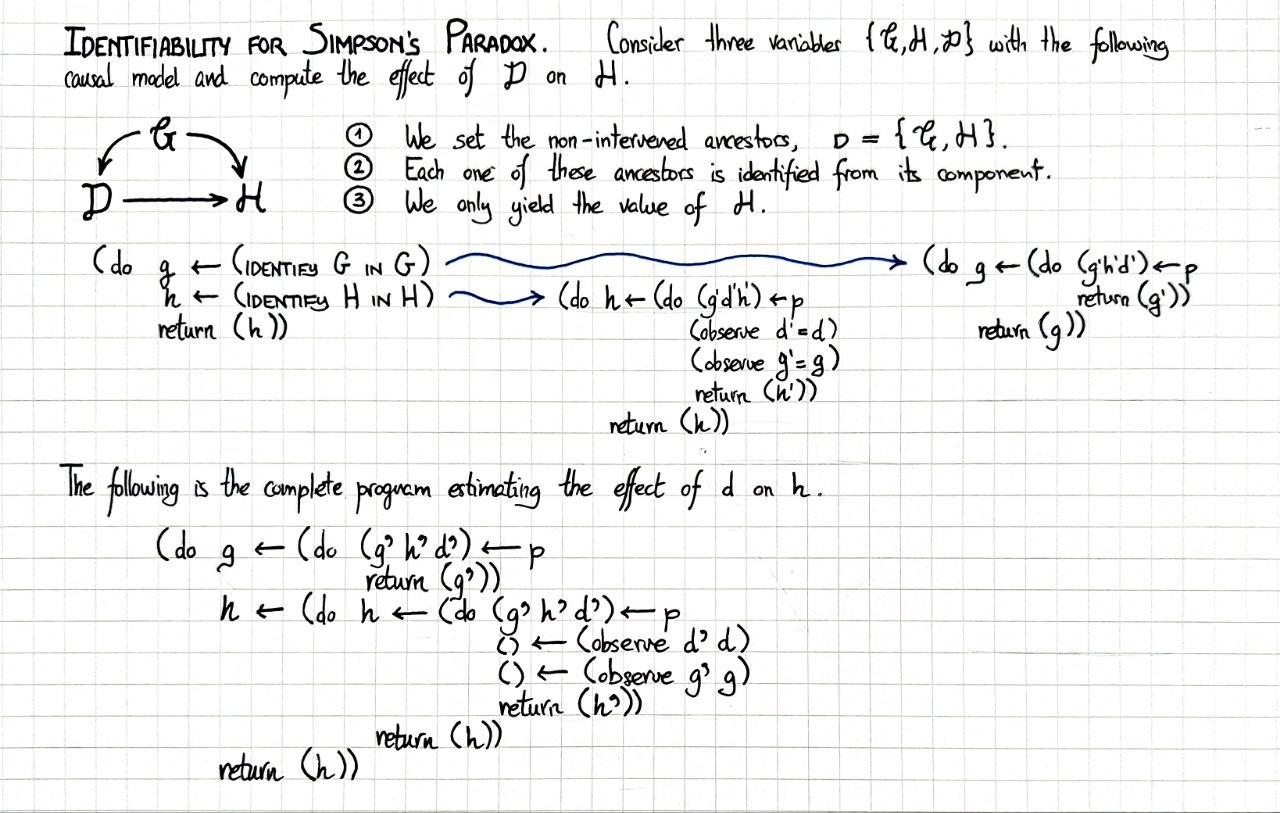 IDENTIFIABILITY FOR SIMPSON'S PARADOX. Consider three variables {G, H, D} with the following
causal model and compute the effect of D on H.
G
D → H
① We set the non-intervened ancestors, D = {G, H}.
② Each one of these ancestors is identified from its component.
③ We only yield the value of H.
(do g ← (IDENTIFY G IN G)
h ← (IDENTIFY H IN H)
return (h))
(do h ← (do (g'd'h') ← p
(observe d' = d)
(observe g' = g)
return (h'))
return (h))
(do g ← (do (g'h'd') ← p
return (g'))
return (g))
The following is the complete program estimating the effect of d on h.
(do g ← (do (g' h' d') ← p
return (g'))
h ← (do h ← (do (g' h' d') ← p
() ← (observe d' d)
() ← (observe g' g)
return (h'))
return (h))
return (h))